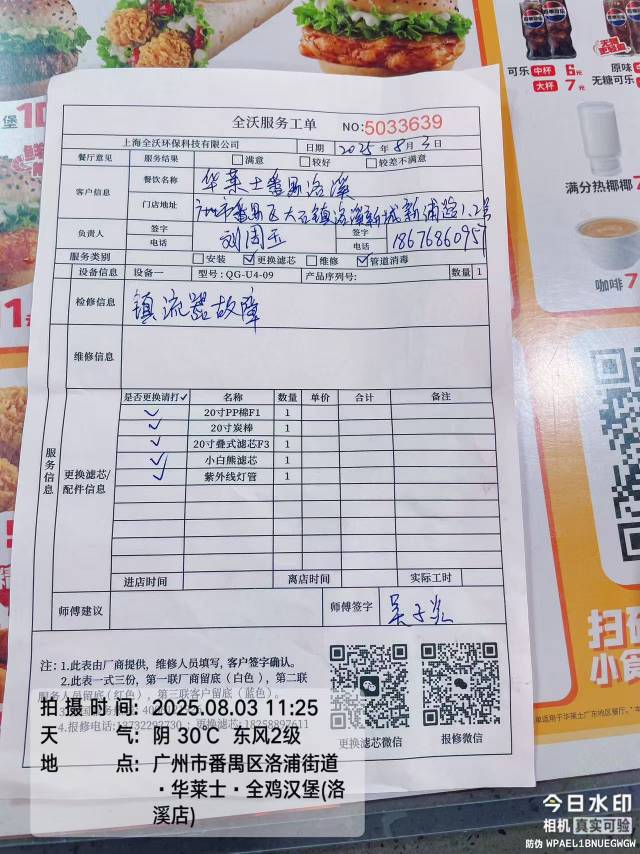 可乐 中杯 6元
大杯 7元
原味
无糖可乐
满分热椰椰
咖啡 7
堡
全沃服务工单 NO:5033639
上海全沃环保科技有限公司 日期 2025 年 8 月 3 日
餐厅意见 服务结果 满意 较好 较差不满意
客户信息 餐饮名称 华莱士番禺洛溪
门店地址 广州市番禺区大石镇洛溪新城新浦路1.2号
负责人 签字 刘周玉 签字
电话 电话 18676860957
服务类别 安装 ✓更换滤芯 维修 ✓管道消毒
设备信息 设备一 型号:QG-U4-09 产品序列号: 数量 1
检修信息 镇流器故障
维修信息
服务信息 更换滤芯/配件信息
是否更换请打✓ 名称 数量 单价 合计 备注
✓ 20寸PP棉F1 1
✓ 20寸炭棒 1
✓ 20寸叠式滤芯F3 1
✓ 小白熊滤芯 1
✓ 紫外线灯管 1
进店时间 离店时间 实际工时
师傅建议 师傅签字
注: 1.此表由厂商提供，维修人员填写，客户签字确认。
2.此表一式三份，第一联厂商留底（白色），第二联
服务人员留底（红色），第三联客户留底（蓝色）。
4.报修电话:13732292730 · 更换滤芯:18258897611
更换滤芯微信 报修微信
扫码
小食
适用于华莱士广东地区餐厅。
拍摄时间: 2025.08.03 11:25
天气: 阴 30℃ 东风2级
地点: 广州市番禺区洛浦街道
·华莱士·全鸡汉堡(洛
溪店)
今日水印
相机 真实可验
防伪 WPAEL1BNUEGWGW